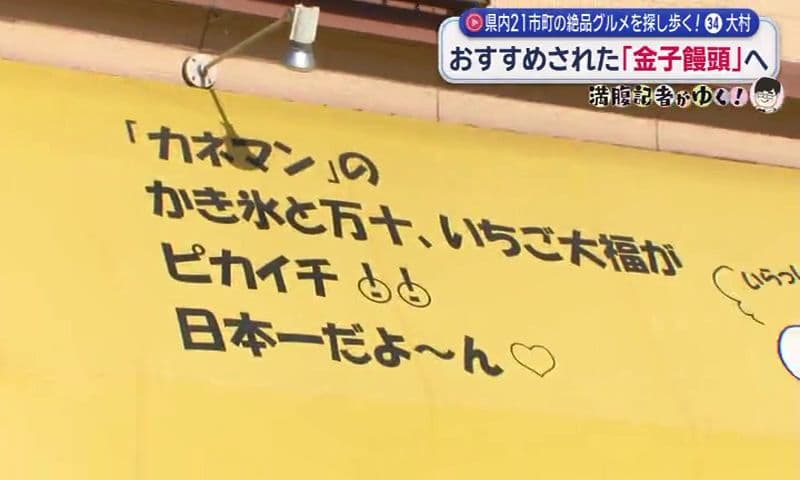 県内21市町の絶品グルメを探し歩く! 34 大村
おすすめされた「金子饅頭」へ
満腹記者がゆく!
「カネマン」の
かき氷と万十、いちご大福が
ピカイチ!!
日本一だよ〜ん♡
いらっし